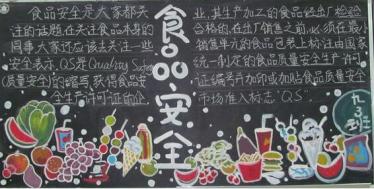 食品安全是大家都关
注的话题,在关注食品本身的
同事大家还应该去关注一些
安全表示,QS是Quality Safety
(质量安全)的缩写,获得食品安
全生产许可证的企
食品安全
业,其生产加工的食品经出厂检验
合格的,在出厂销售之前,必须在最小
销售单元的食品包装上标注由国家
统一制定的食品质量安全生产许可
证编号并加印或加贴食品质量安全
市场准入标志"QS"
九.3班